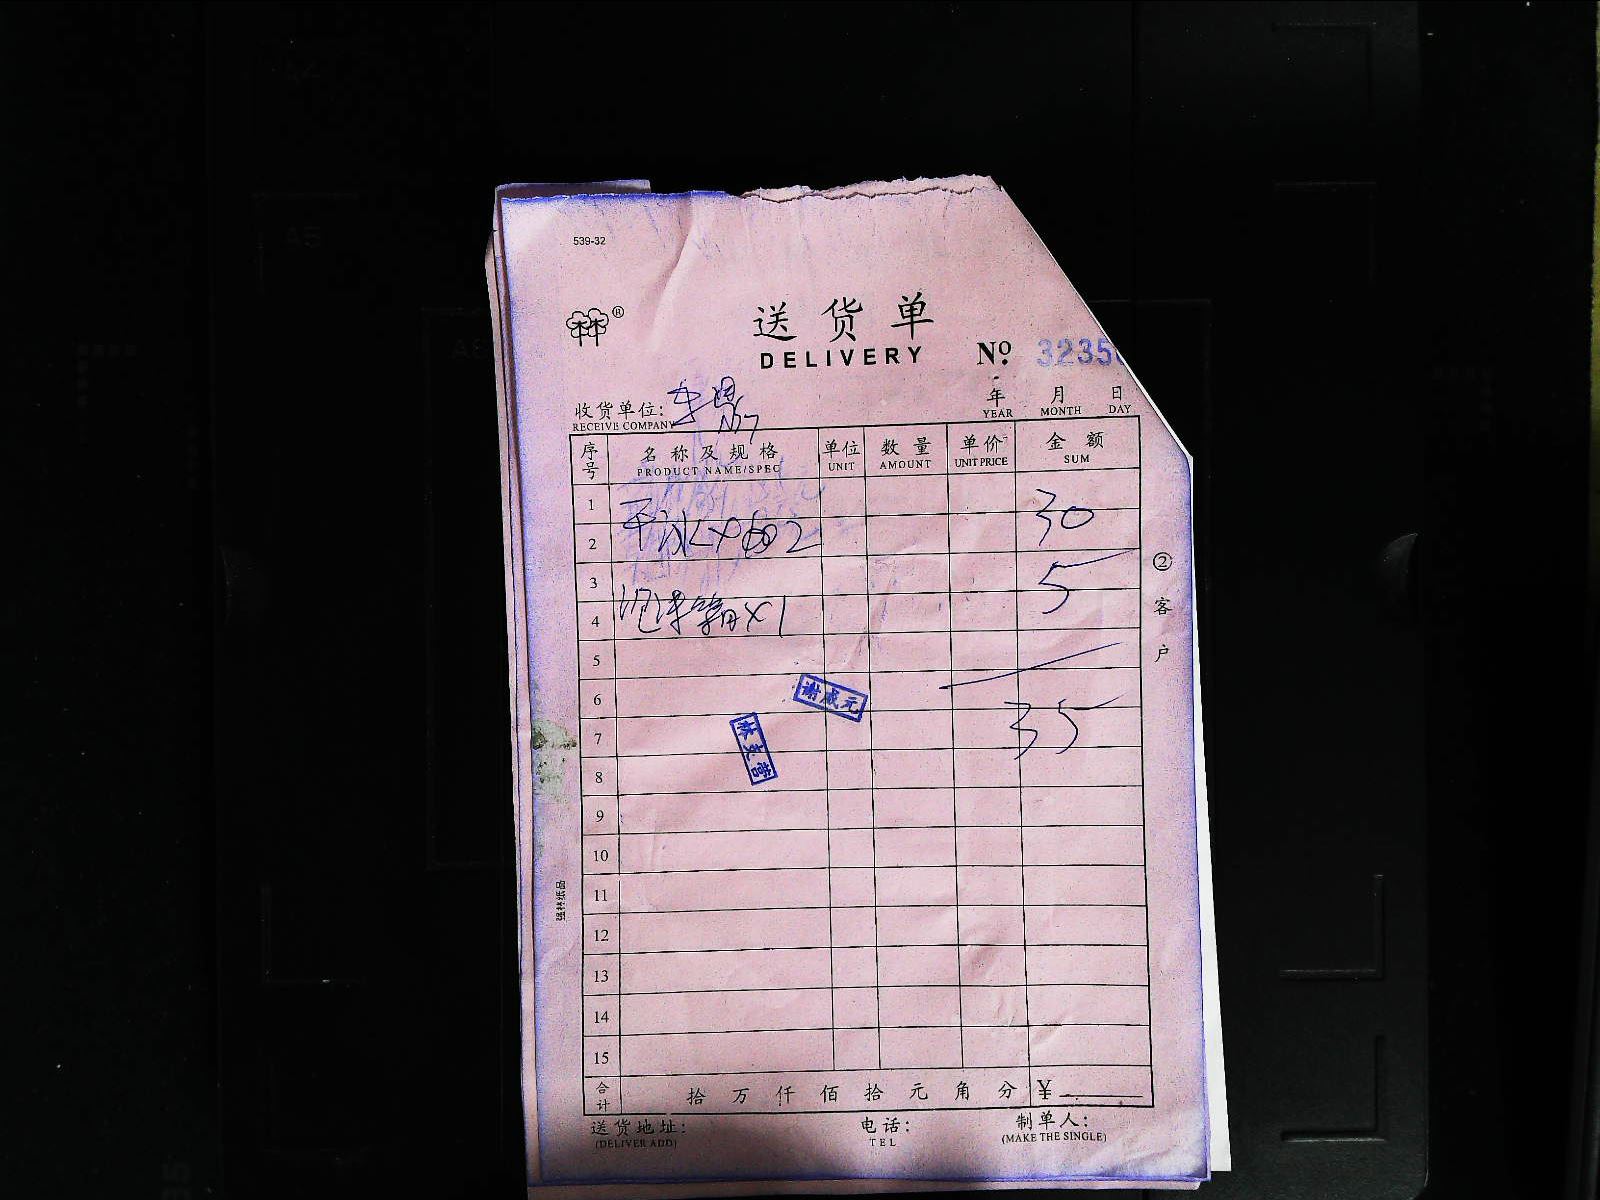 539-32
林林®
送货单
DELIVERY
№ 3235
年 月 日
YEAR MONTH DAY
收货单位:
RECEIVE COMPANY
序号 名称及规格 单位 数量 单价 金额
PRODUCT NAME/SPEC UNIT AMOUNT UNIT PRICE SUM
1
2 干冰 2 30
3
4 泡沫箱X1 5
5
6
7 35
8
9
10
11
12
13
14
15
谢成元
林支营
② 客户
强林纸品
合计 拾 万 仟 佰 拾 元 角 分 ¥
送货地址: 电话: 制单人:
(DELIVER ADD) TEL (MAKE THE SINGLE)